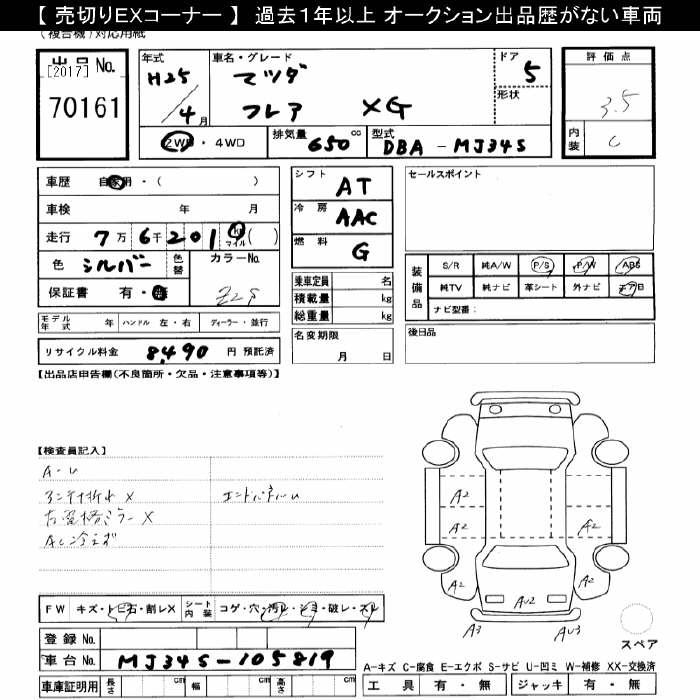 【 売切りEXコーナー 】 過去1年以上 オークション出品歴がない車両
(複合機)対応用紙
出品No.
[2017]
70161
年式
H25/4月
車名・グレード
マツダ
フレア XG
ドア
5
形状
評価点
3.5
内装
C
2WD・4WD
排気量 650 cc
型式 DBA-MJ34S
車歴 自家用・( )
車検 年 月
走行 7万6千201 km マイル ( )
色 シルバー
色替
カラーNo.
Z2S
保証書 有・無
シフト AT
冷房 AAC
燃料 G
乗車定員 名
積載量 kg
総重量 kg
名変期限
月 日
セールスポイント
装備品
S/R 純A/W P/S P/W ABS
純TV 純ナビ 革シート 外ナビ エアB
ナビ型番:
後日品
モデル年式 年 ハンドル 左・右 ディーラー・並行
リサイクル料金 8,490 円 預託済
【出品店申告欄(不良箇所・欠品・注意事項等)】
【検査員記入】
A-U
アンテナ折れ X
エンドパネルU
右電格ミラー X
AC冷えず
A2
A2
A2
A2
A2
A2
AU2
A3
AU3
スペア
FW キズ・トビ石・割レX
シート内装 コゲ・穴・汚レ・シミ・破レ・スレ
登録No.
車台No. MJ34S-105819
A-キズ C-腐食 E-エクボ S-サビ U-凹ミ W-補修 XX-交換済
車庫証明用 長さ cm 幅 cm 高さ cm
工具 有・無 ジャッキ 有・無